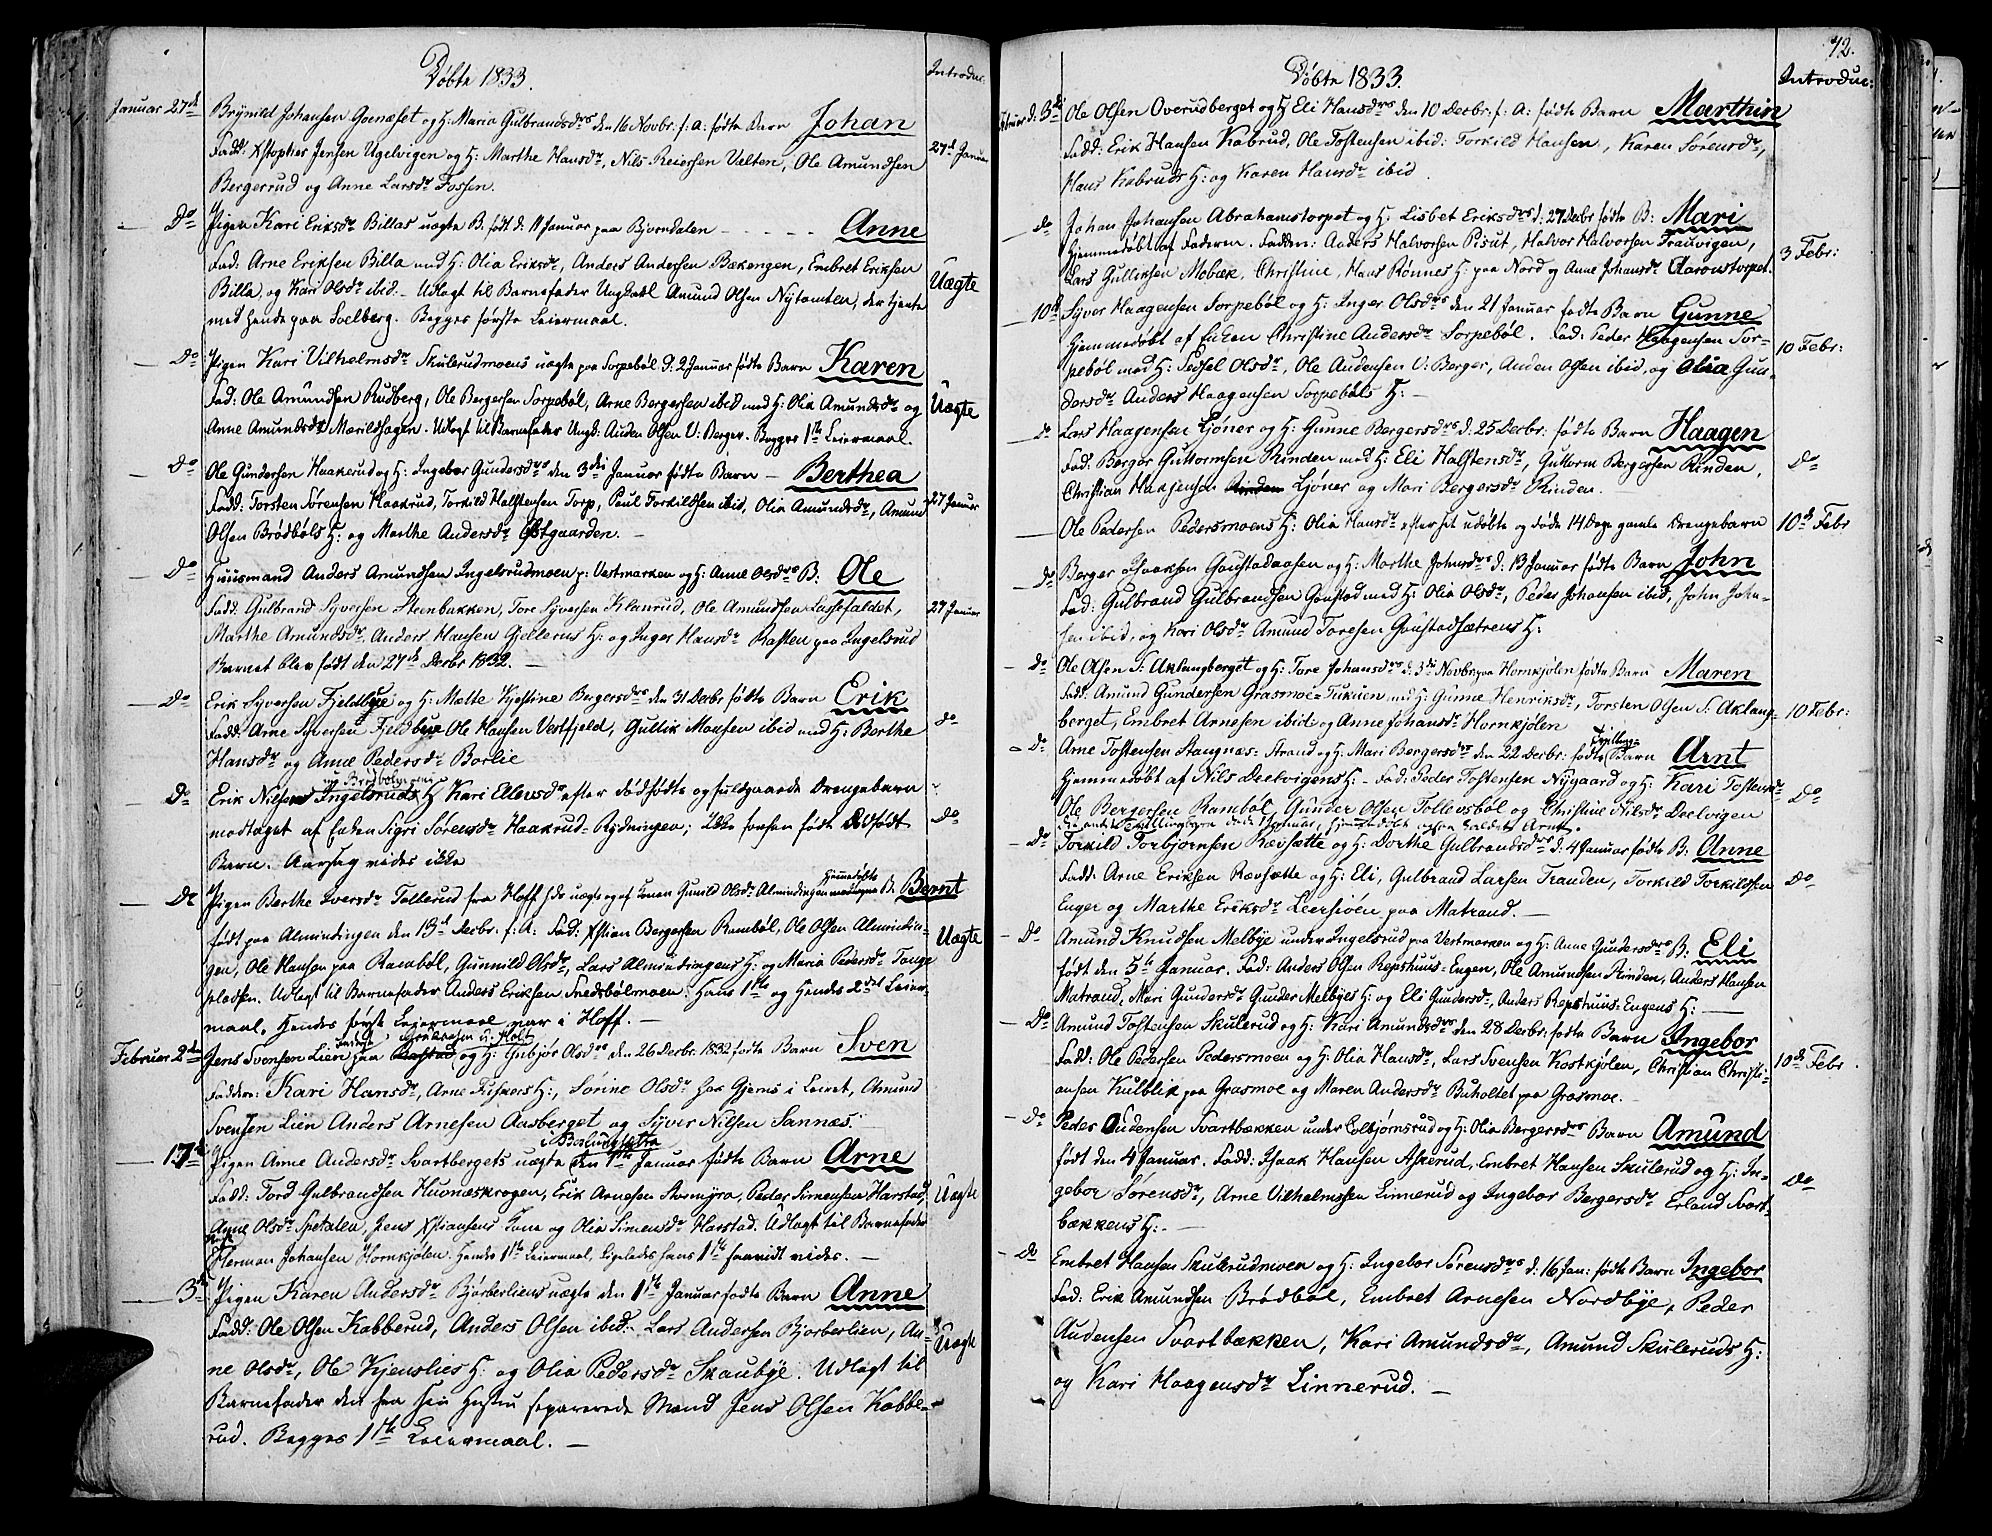 Døbte 1833.
Introduc:
Januar 27de Brynild Johansen Goenæset og H: Maria Gulbrandsdr den 16 Novbr: f: a: fødte Barn Johan
Fadd: Xstopher Jensen Ugelvigen og H: Marthe Hansdr, Nils Reiersen Velten, Ole Amundsen 27de Januar
Bergerrud og Anne Larsdr Fossen.
Do Pigen Kari Eriksdr Billas uægte B. født d: 11 Januar paa Bjørndalen - - - - - Anne
Fad: Arne Eriksen Billa med H: Olia Eriksdr, Anders Andersen Bækengen, Embret Eriksen
Billa, og Kari Olsdr ibid. - Udlagt til Barnefader Ungkarl Amund Olsen Nytomten, der tjente Uægte
med hende paa Solberg. Begges første Leiermaal.
Do Pigen Kari Vilhelmsdr Skulerudmoens uægte paa Torpebøl d. 2 Januar fødte Barn Karen
Fad: Ole Amundsen Rudberg, Ole Bergersen Torpebøl, Arne Bergersen ibid med H: Olia Amundsdr og Uægte
Anne Amundsdr Marildhagen. Udlagt til Barnefader Ungk: Auden Olsen V: Berger. Begges 1ste Leiermaal.
Do Ole Gundersen Haakerud og H: Ingebor Gundersdr den 3die Januar fødte Barn - Berthea
Fadd: Torsten Sørensen Haakrud, Torkild Halstensen Torp, Paul Torkildsen ibid, Olia Amundsdr, Amund 27 Januar
Olsen Brødbøls H: og Marthe Andersdr Østgaarden. -
Do Huusmand Anders Amundsen Ingelsrudmoen p: Vestmarken og H: Anne Olsdr B: Ole
Fadd: Gulbrand Syversen Steenbakken, Tore Syversen Klanrud, Ole Amundsen Lassefaldet, 27 Januar
Marthe Amundsdr, Anders Hansen Gjellerus H: og Inger Hansdr Bassten paa Ingelsrud
Barnet blev født den 27de Decbr 1832. -
Do Erik Syversen Fjeldbye og H: Mætte Kjestine Bergersdr den 31 Decbr fødte Barn Erik
Fadd: Arne Syversen Fjeldbye Ole Hansen Vestfjeld, Gullik Monsen ibid med H: Berthe do
Hansdr og Anne Pedersdr Borlie
Do Erik Nilsens Ingelsruds H Kari Ellensdr efter dødfødte og fuldgaaede Drengebarn
modtaget af Enken Sigri Sørensdr Haakrud-Rydningen; Ikke forhen født Dødfødt do
Barn. Aarsag vides ikke
Do Pigen Berthe Iversdr Tollerud fra Hoff s: do uægte og af Konen Gunild Olsdr Almindingen Hjemmedøbte B: Bernt
født paa Almindingen den 13de Decbr: f: A: Fad: Xstian Bergersen Rambøl, Ole Olsen Almindin- Uægte
gen, Ole Hansen paa Rambøl, Gunnild Olsdr, Lars Almindingens H: og Maria Pedersdr Tange
pladsen. Udlagt til Barnefader Anders Eriksen Fredsbølmoen: Hans 1ste og Hendes 2det Leier-
maal. Hendes første Leiermaal var i Hoff. -
Februar 2den Jens Svensen Lien paa og H: Gubjør Olsdr den 26 Decbr. 1832 fødte Barn Sven
Faddere: Kari Hansdr, Arne Fiskers H:, Sørine Olsdr hos Gjems i Leiret, Amund
Svensen Lien Anders Arnesen Aasberget og Syver Nilsen Sannæs.
17de Pigen Anne Andersdr Svartbergets uægte den 1ste Januar fødte Barn Arne
Fadd: Tord Gulbrandsen Huonæskrogen, Erik Arnesen Stormyra, Peder Simensen Harstad, Uægte
Anne Olsdr Spetalen, Jens Xstiansens Kone og Olia Simensdr Harstad. Udlagt til Barnefader
Herman Johansen Hornkjølen. Hendes 1ste Leiermaal, Ligeledes hans 1ste saavidt vides. -
3de Pigen Karen Andersdr Bjørberliens uægte den 1ste Januar fødte Barn Anne
Fadd: Ole Olsen Kabberud, Anders Olsen ibid. Lars Andersen Bjørberlien, An- Uægte
ne Olsdr, Ole Kjenslies H: og Olia Pedersdr Skaubye. Udlagt til
Barnefader den fra sin Hustru separerede Mand Jens Olsen Kabbe-
rud. Begges 1ste Leiermaal. -
72.
Døbte 1833.
Introduc:
Februar d. 3de Ole Olsen Overudberget og H: Eli Hansdr den 10 Decbr: f: A: fødte Barn Marthin
Fadd: Erik Hansen Kabrud, Ole Tostensen ibid: Torkild Hansen, Karen Sørensdr,
Hans Kabruds H: og Karen Hansdr ibid.
do Johan Johansen Abrahamstorpet og H: Lisbet Eriksdr d: 27 Decbr fødte B: Mari
Hjemmedøbt af Faderen. Fadden: Anders Halvorsen Pisut, Halvor Halvorsen Trautvigen, 3 Febr:
Lars Gulliksen Mobæk, Christine, Hans Rønnes H: paa Nord og Anne Johansdr Aaronstorpet.
10de Syver Haagensen Torpebøl og H: Inger Olsdr den 21 Januar fødte Barn Gunne
Hjemmedøbt af Enken Christine Andersdr Torpebøl. Fad: Peder Haagensen Tor- 10 Febr:
pebøl med H: Sedsel Olsdr, Ole Audensen V: Berger, Auden Olsen ibid, og Olia Gun-
dersdr Anders Haagensen Torpebøls H: -
do Lars Haagensen Ljøner og H: Gunne Bergersdr d: 25 Decbr: fødte Barn Haagen
Fad: Berger Guttormsen Rinden med H: Eli Halstensdr, Guttorm Bergersen Rinden, Do
Christian Haagensen Ljøner og Mari Bergersdr Rinden. -
Ole Pedersen Pedersmoens H: Olia Hansdr efter sit udøbte og døde 14 Dage gamle Drengebarn 10de Febr
Do Berger Isaaksen Goustadaasen og H: Marthe Johnsdr d. 13 Januar fødte Barn John
Fad: Gulbrand Gulbrandsen Goustad med H: Olia Olsdr, Peder Johansen ibid, John John-
sen ibid, og Kari Olsdr Amund Toresen Goustadsætrens H:
Do Ole Olsen S: Aklangberget og H: Tore Johansdr d: 3die Novbr paa Hornkjølen fødte Barn Maren
Fadd: Amund Gundersen Grasmoe-Tukuen med H: Gunne Henriksdr, Torsten Olsen S: Aklang-
berget, Embret Arnesen ibid: og Anne Johansdr Hornkjølen 10 Febr:
Do Arne Tostensen Stangnæs-Strand og H: Mari Bergersdr den 22 Decbr: fødte Tvilling- Barn Arnt
Hjemmedøbt af Nils Deelvigens H: - Fad: Peder Tostensen Nygaard og H: Kari Tostensdr
Ole Bergersen Rambøl, Gunder Olsen Tollevsbøl og Christine Nilsdr Deelvigen Do
Do Torkild Torbjørnsen Rævsætte og H: Dorthe Gulbrandsdr d: 4 Januar fødte B: Anne
Fadd: Arne Eriksen Rævsætte og H: Eli, Gulbrand Larsen Tranden, Torkild Torkildsen Do
Enger og Marthe Eriksdr Leersjøen paa Matrand. -
Do Amund Knudsen Melbye under Ingelsrud paa Vestmarken og H: Anne Gundersdr B: Eli
født den 5te Januar. Fad: Anders Olsen Repshuus-Engen, Ole Amundsen Rinden, Anders Hansen
Matrand, Mari Gundersdr Gunder Melbyes H: og Eli Gundersdr, Anders Repshuus-Engens H: -
Do Amund Tostensen Skulerud og H: Kari Amundsdr den 28 Decbr: fødte Barn Ingebor
Fadd: Ole Pedersen Pedersmoen og H: Olia Hansdr, Lars Svensen Kostkjølen, Christian Christi- 10de Febr.
ansen Kulblik paa Grasmoe og Maren Andersdr Buholtet paa Grasmoe. -
Do Peder Audensen Svartbækken under Colbjørnsrud og H: Olia Bergersdr Barn Amund
født den 4 Januar. Fadd: Isaak Hansen Askerud, Embret Hansen Skulerud og H: In- Do
gebor Sørensdr, Arne Vilhelmssen Linnerud og Ingebor Bergersdr Erland Svart-
bækkens H:. -
do Embret Hansen Skulerudmoen og H: Ingebor Sørensdr d: 16 Jan: fødte Barn Ingebor
Fad: Erik Amundsen Brødbøl, Embret Arnesen Nordbye, Peder
Audensen Svartbækken, Kari Amundsdr, Amund Skuleruds H:
og Kari Haagensdr Linnerud. -